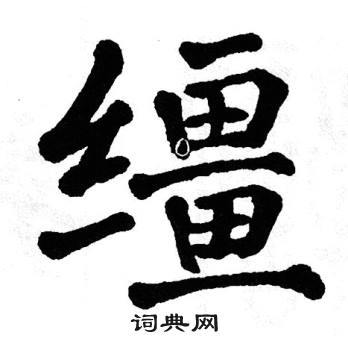 缰
词典网